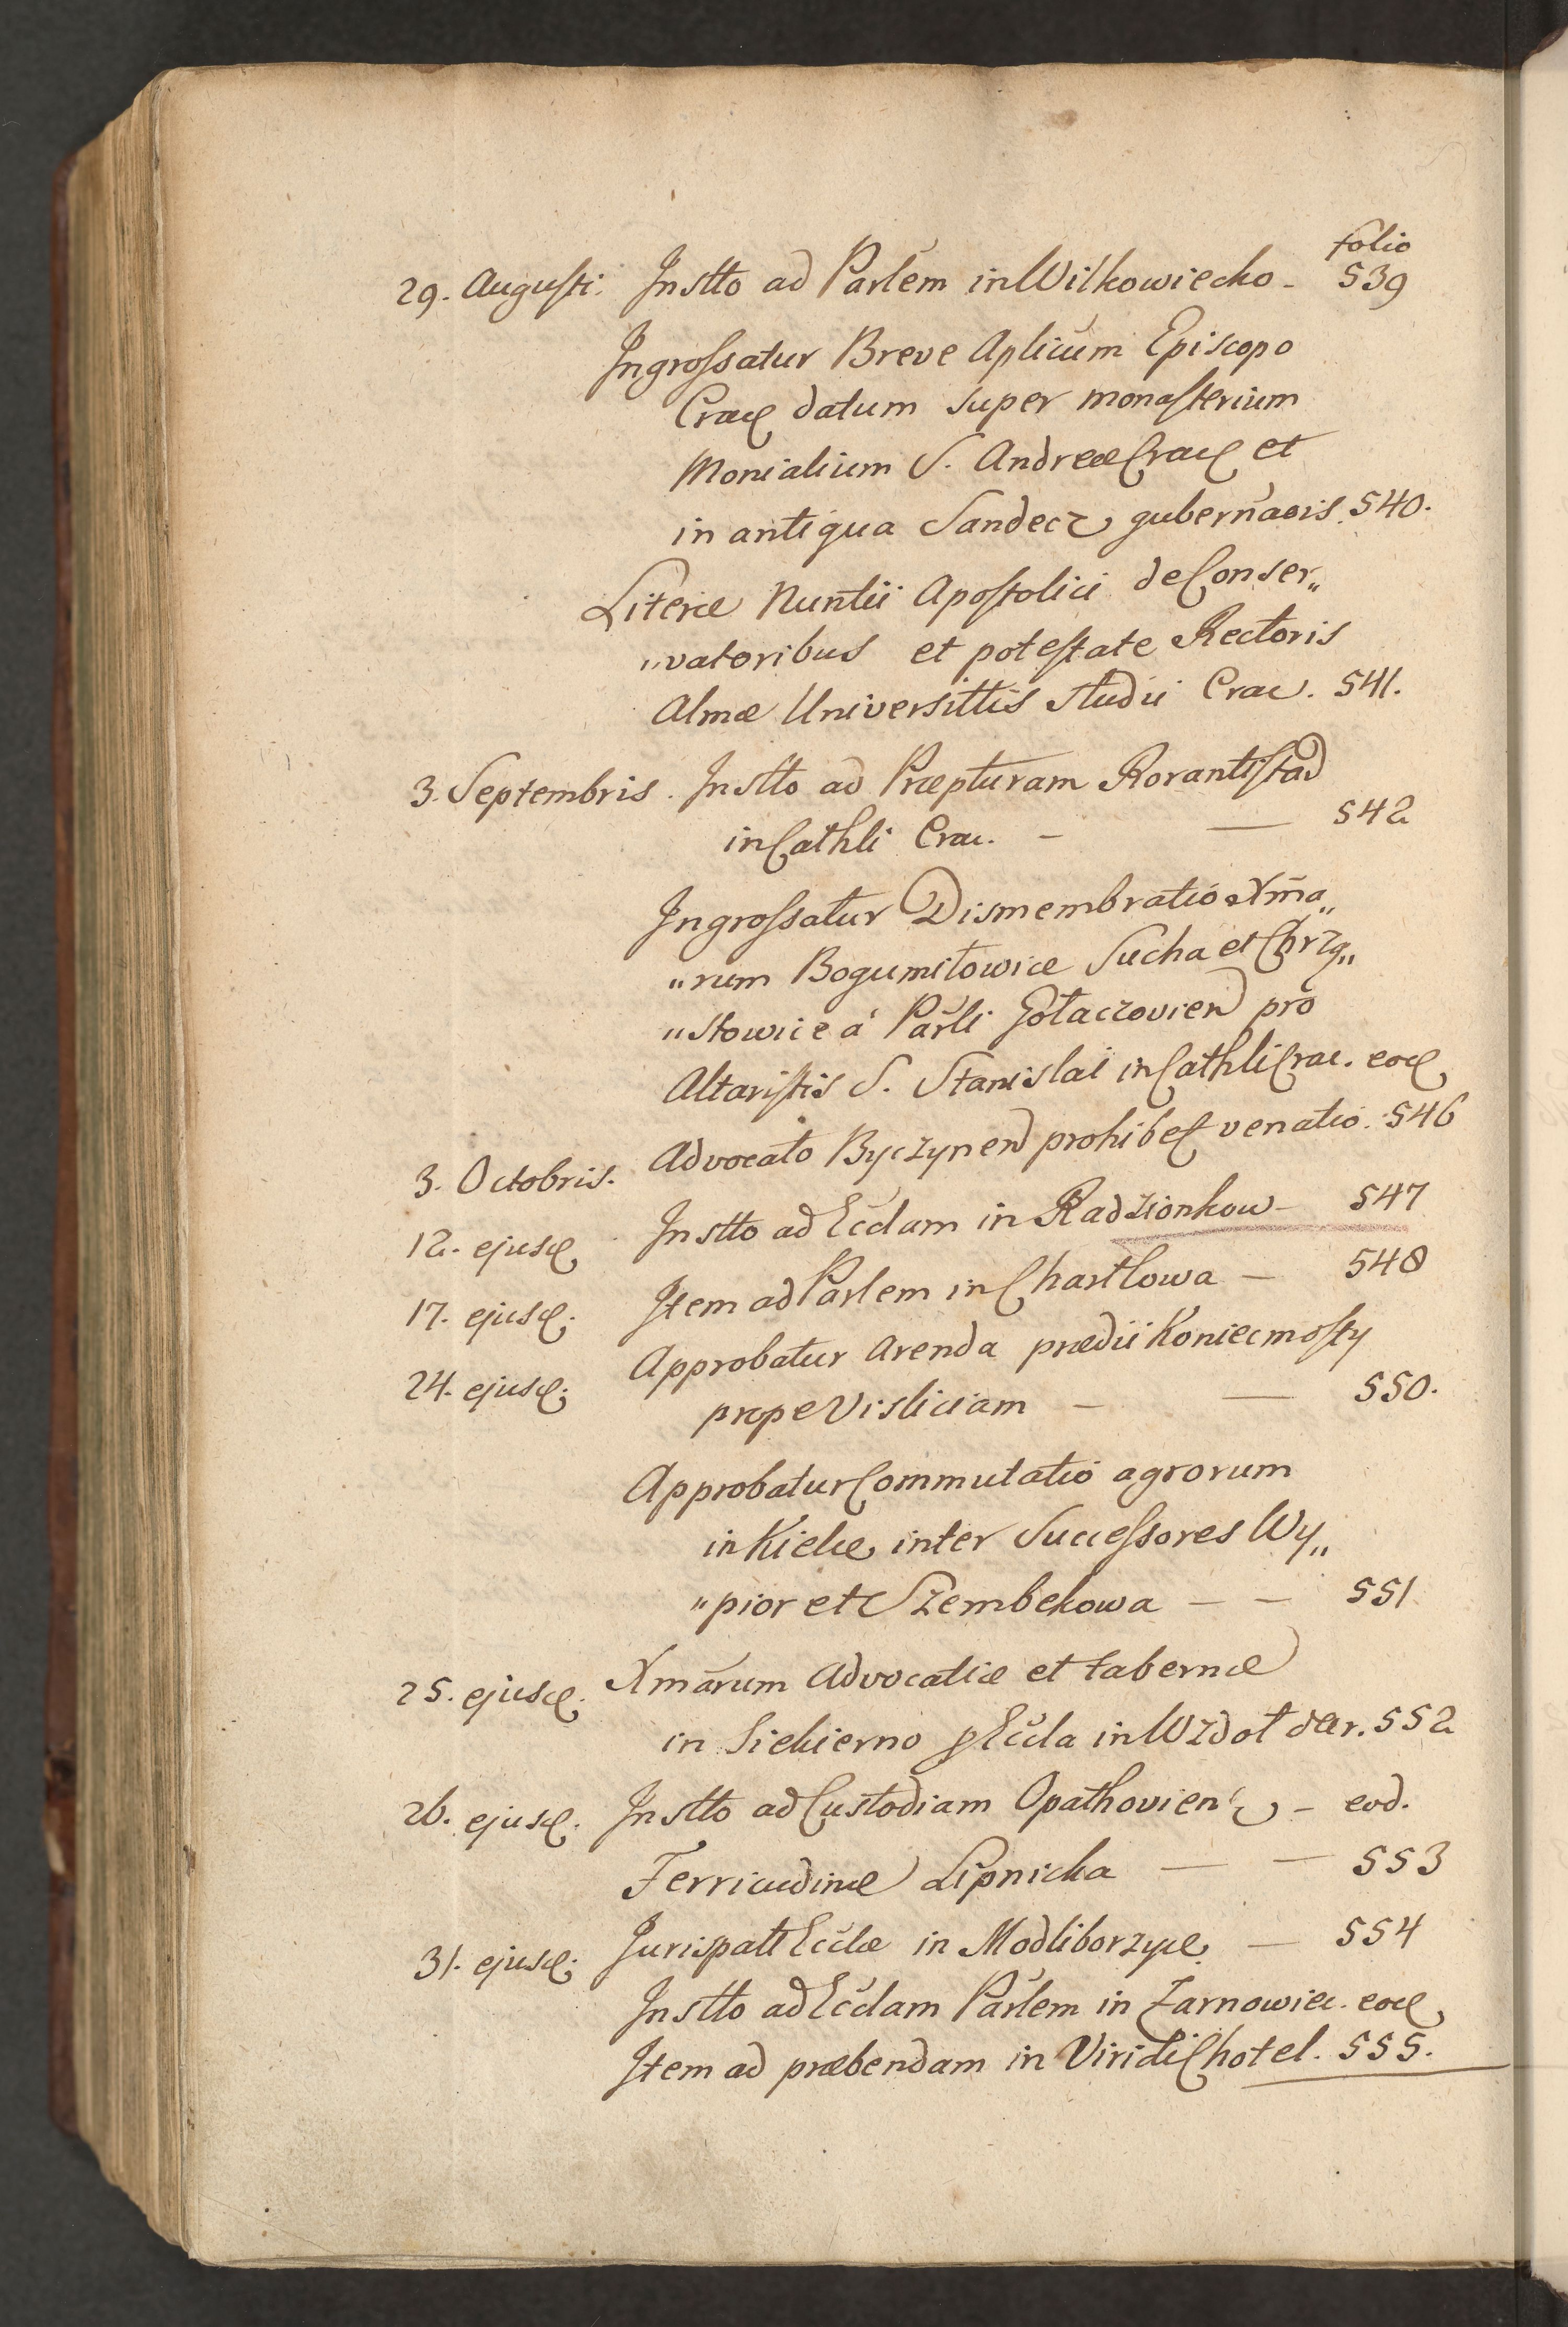 folio
29. Augusti. Instto ad Parlem in Wilkowiecko - 539
Ingrossatur Breve Aplicum Episcopo
Crac datum super monasterium
Monialium S. Andreæ Crac et
in antiqua Sandecz gubernaōis. 540.
Literæ Nuntii Apostolici de Conser„
„vatoribus et potestate Rectoris
Almæ Universittis Studii Crac. 541.
3. Septembris. Instto ad Præpturam Rorantistad
in Cathli Crac. - — 542
Ingrossatur Dismembratio Xma„
„rum Bogumiłowice Sucha et Chrzą„
„stowice á Parli Gołaczovien pro
Altaristis S. Stanislai in Cathli Crac. eod
3. Octobris. Advocato Byczynen prohibet venatio. 546
12. ejusd Instto ad Ecclam in Radzionkow - 547
17. ejusd. Item ad Parlem in Chartłowa - 548
24. ejusd. Approbatur Arenda prædii Koniecmosty
prope Visliciam - — 550.
Approbatur Commutatio agrorum
in Kielce inter Successores Wy„
„pior et Szembekowa - - 551
25. ejusd. Xmarum Advocatiæ et tabernæ
in Siekierno p Eccla in Wzdoł der. 552
26. ejusd. Instto ad Custodiam Opathovien - eod.
Terricidinæ Lipnicka — — 553
31. ejusd. Jurispatt Ecclæ in Modliborzyce — 554
Instto ad Ecclam Parlem in Żarnowiec. eod
Item ad præbendam in Viridi Chotel. 555.